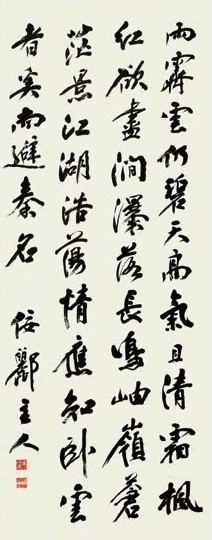 雨霽雲仍碧天高氣且清霜楓
紅欲盡澗瀑落長鳴岫嶺蒼
茫景江湖浩蕩情應知臥雲
者寞南避秦名
佞酈主人